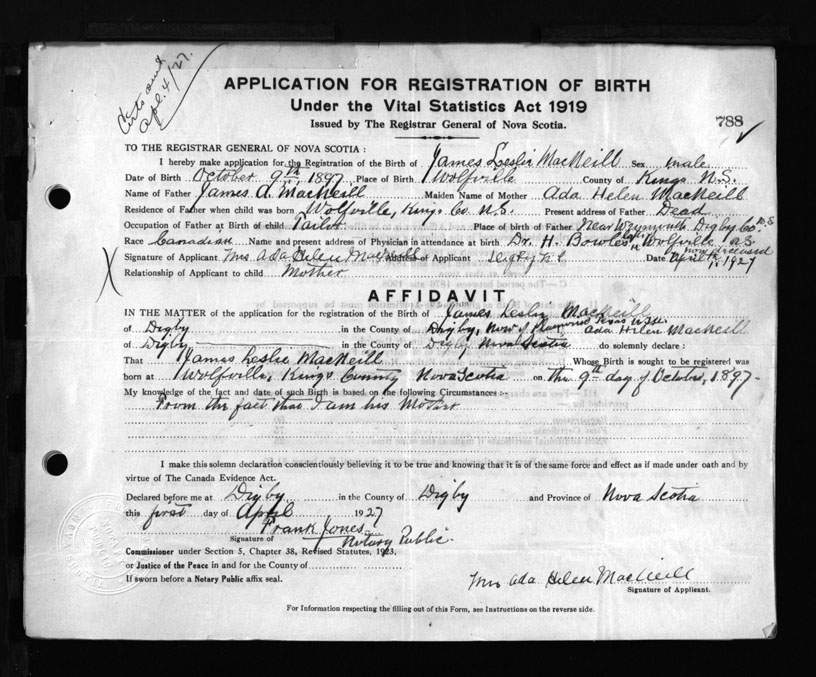 Certs sent
Apl. 4/27.
APPLICATION FOR REGISTRATION OF BIRTH
Under the Vital Statistics Act 1919
788
Issued by The Registrar General of Nova Scotia.
TO THE REGISTRAR GENERAL OF NOVA SCOTIA:
I hereby make application for the Registration of the Birth of James Leslie MacNeill Sex male
Date of Birth October 9th, 1897 Place of Birth Wolfville County of Kings N.S.
Name of Father James A. MacNeill Maiden Name of Mother Ada Helen MacNeill
Residence of Father when child was born Wolfville, Kings Co. N.S. Present address of Father Dead
Occupation of Father at Birth of child Tailor Place of birth of Father Near Weymouth Digby Co. N.S
Race Canadian Name and present address of Physician in attendance at birth Dr. H. Bowles Wolfville N.S now deceased
Signature of Applicant Mrs Ada Helen MacNeill Address of Applicant Digby N.S Date April 1, 1927
Relationship of Applicant to child Mother
AFFIDAVIT
IN THE MATTER of the application for the registration of the Birth of James Leslie MacNeill
of Digby in the County of Digby, now of Texas Ada Helen MacNeill
of Digby in the County of Digby Nova Scotia do solemnly declare:
That James Leslie MacNeill Whose Birth is sought to be registered was
born at Wolfville, Kings County Nova Scotia on the 9th day of October, 1897-
My knowledge of the fact and date of such Birth is based on the following Circumstances:-
From the fact that I am his Mother
I make this solemn declaration conscientiously believing it to be true and knowing that it is of the same force and effect as if made under oath and by
virtue of The Canada Evidence Act.
Declared before me at Digby in the County of Digby and Province of Nova Scotia
this first day of April 1927
Frank Jones
Signature of Notary Public.
Commissioner under Section 5, Chapter 38, Revised Statutes, 1923,
or Justice of the Peace in and for the County of
If sworn before a Notary Public affix seal.
Mrs Ada Helen MacNeill
Signature of Applicant.
For Information respecting the filling out of this Form, see Instructions on the reverse side.